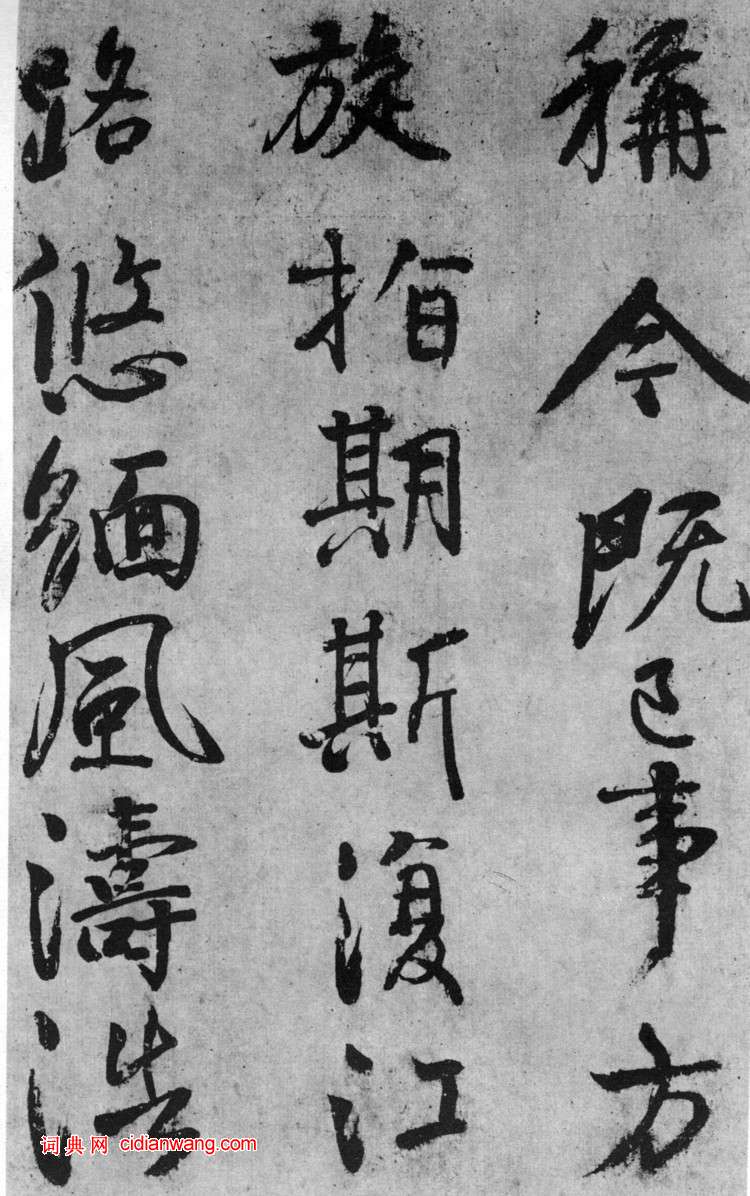 稱今既已事方
旋指期斯復江
路悠緬風濤浩
词典网 cidianwang.com